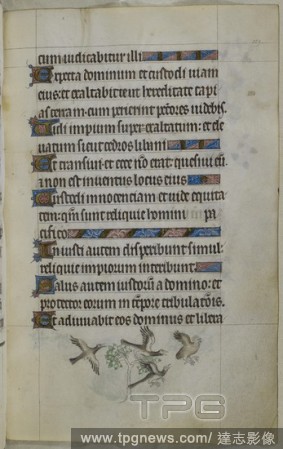 cum iudicabitur illi
Expecta dominum et custodi uiam
eius: et exaltabit te ut hereditate capi
as terram: cum perierint pctores uidebis.
Uidi impium super exaltatum: et ele
uatum sicut cedros libani
Et transiui et ecce nō erat: quesiui eū
et non est inuentus locus eius
Custodi innocenciam et uide equita
tem: qm̄ sunt reliquie homini pa
cifico
Iniusti autem disperibunt simul:
reliquie impiorum interibunt
Salus autem iustorū a domino: et
protector eorum in tēpore tribulatōis.
Et adiuuabit eos dominus et libera
TPG
www.tpgnews.com/ 達志影像